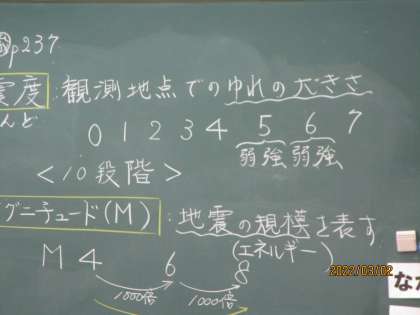 p237
震度:観測地点でのゆれの大きさ
んど
0 1 2 3 4 5 6 7
弱強 弱強
<10段階>
グニチュード(M):地震の規模を表す
(エネルギー)
M 4 6 8
1000倍 1000倍
2022/03/02
な